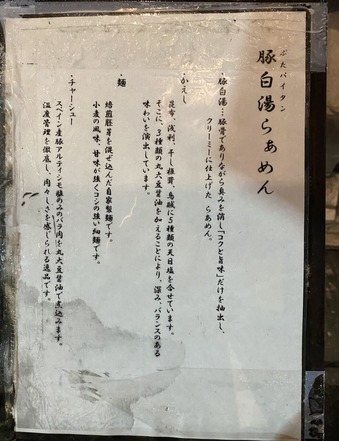 ぶたパイタン
豚白湯らぁめん
・豚白湯…豚骨でありながら臭みを消し「コクと旨味」だけを抽出し、
クリーミーに仕上げた らぁめん。
・かえし
昆布、浅利、干し椎茸、鳥賊に5種類の天日塩を合せています。
そこに、3種類の丸大豆醤油を加えることにより、深み、バランスのある
味わいを演出しています。
・麺
焙煎胚芽を混ぜ込んだ自家製麺です。
小麦の風味、甘味が強くコシの強い細麺です。
・チャーシュー
スペイン産豚アルティシモ種のみのバラ肉を丸大豆醤油で煮込みます。
温度管理を徹底し、肉々しさを感じられる逸品です。